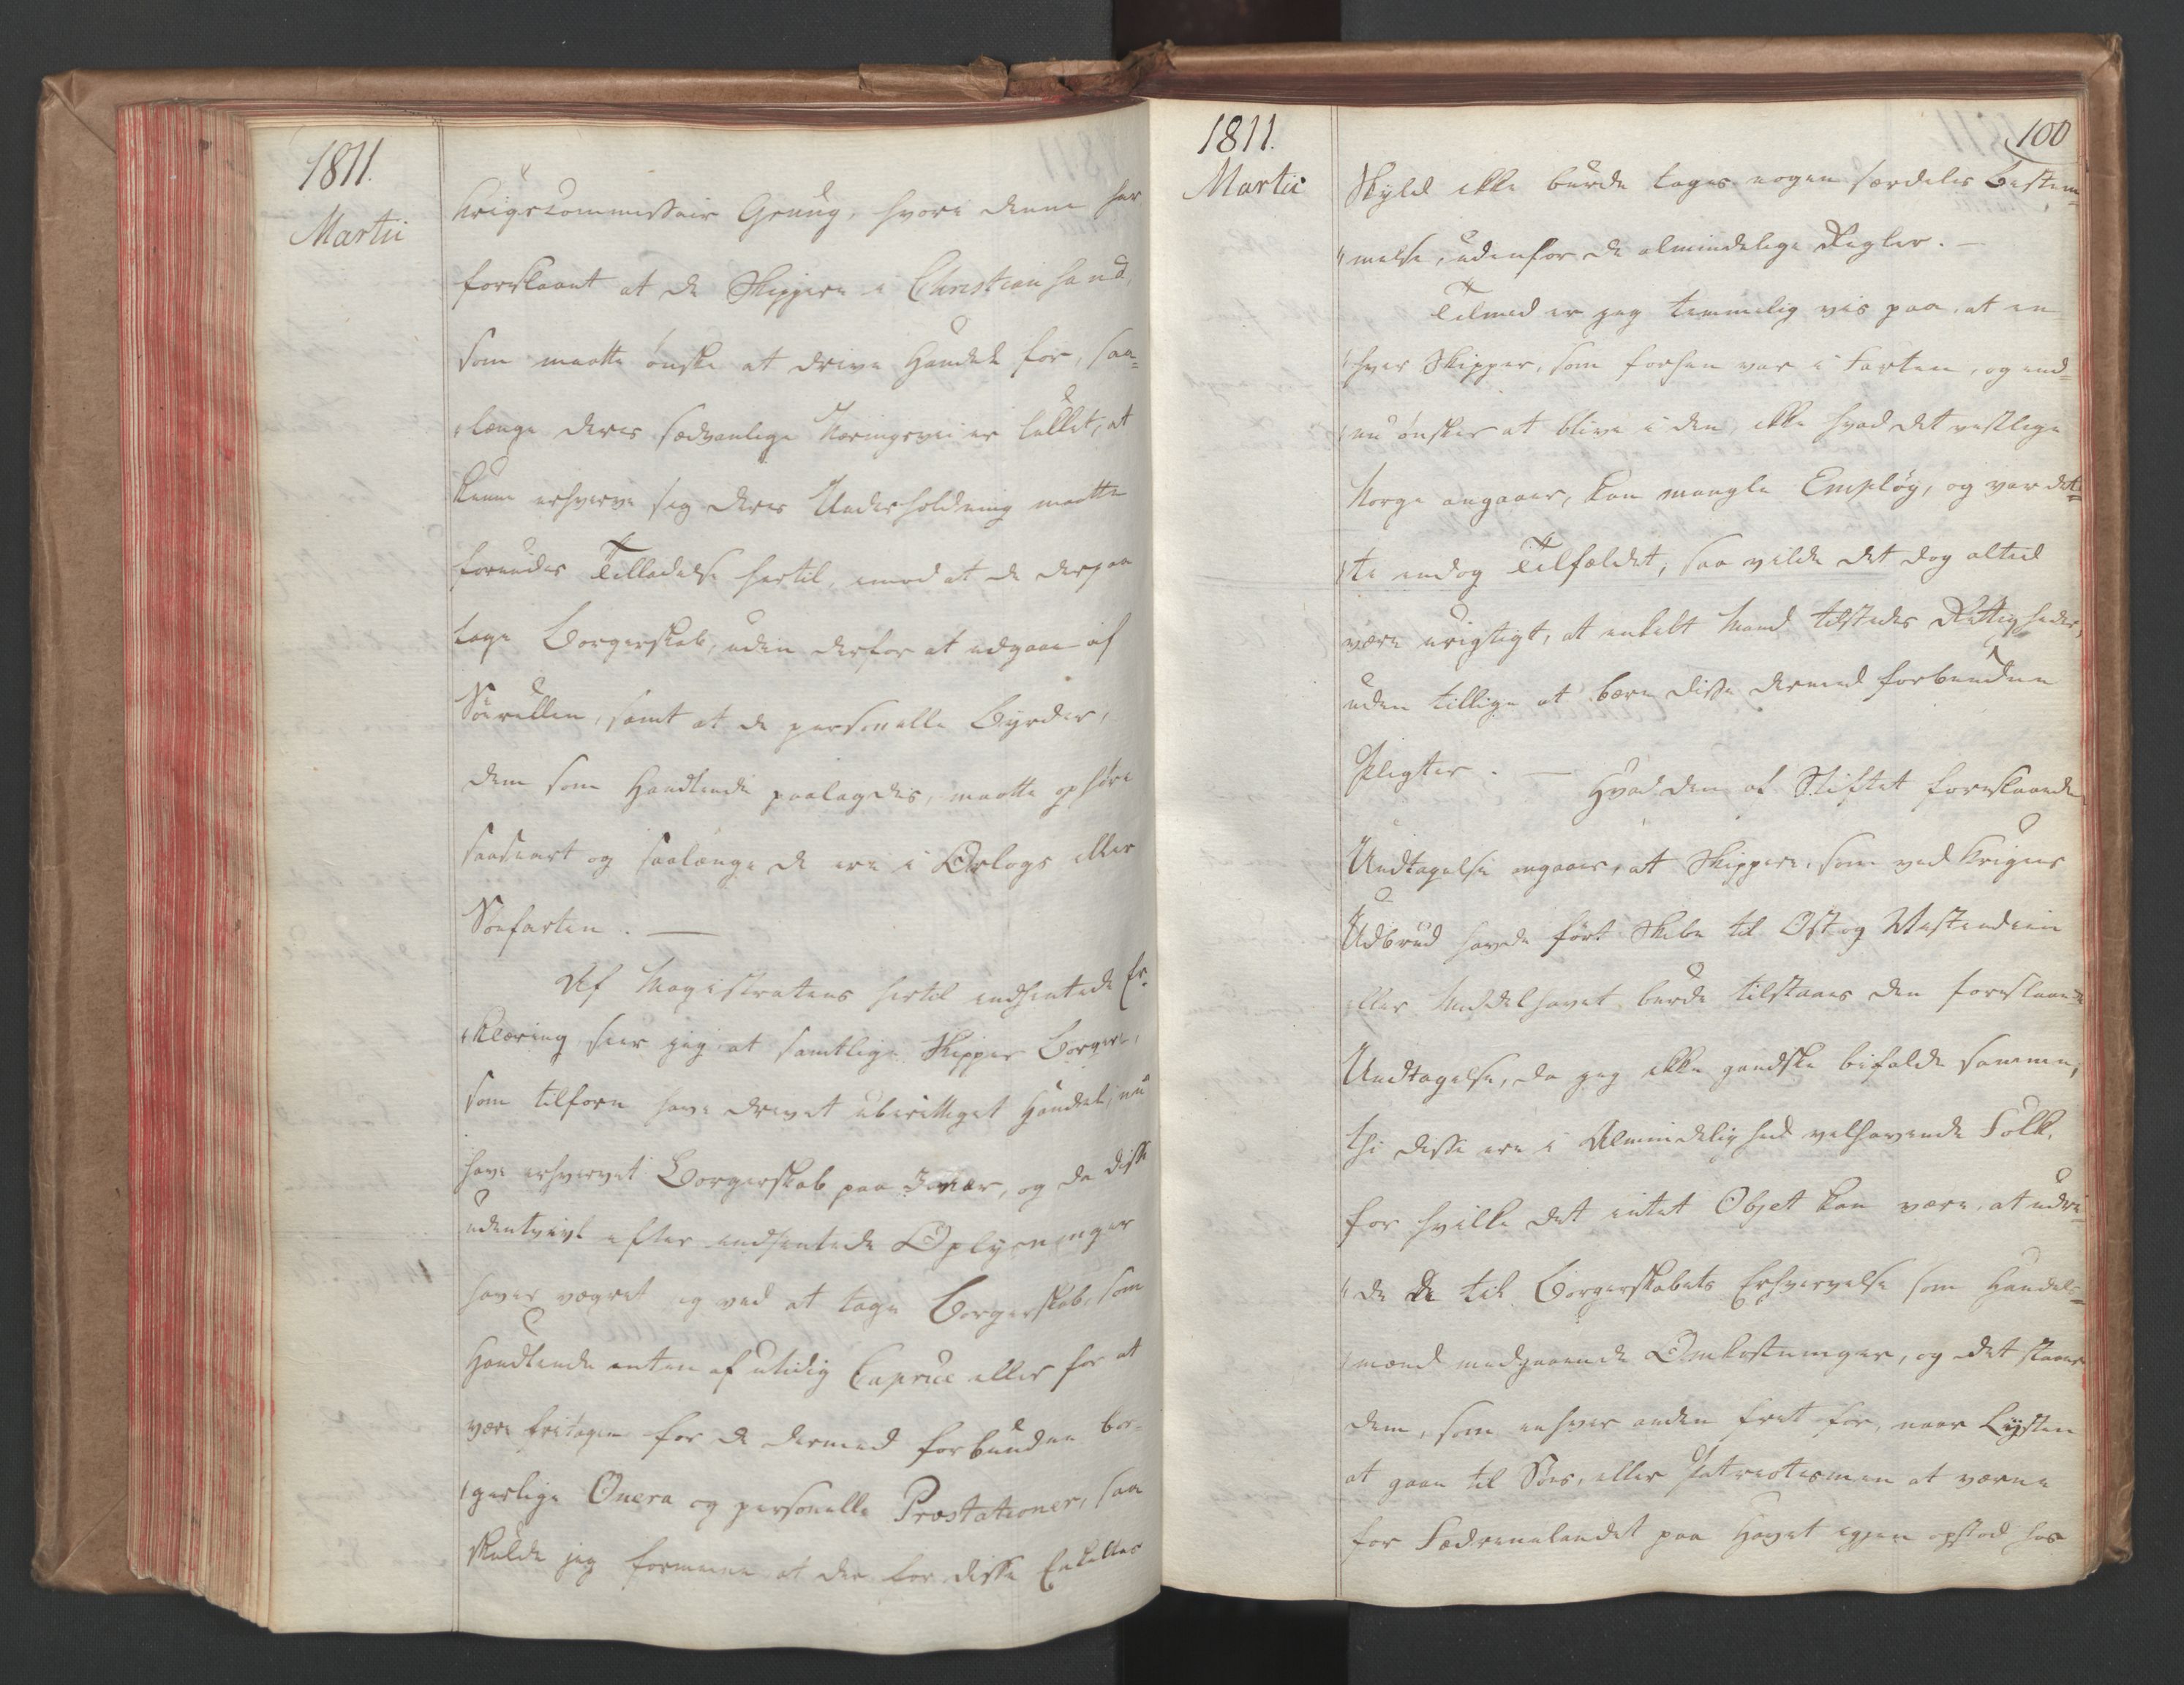 1811.
Martii
Krigscommissair Grüüg, hvori denne har
foreslaaet at de Skippere i Christiansand,
som maatte ønske at drive Handel for, saa-
længe deres sædvanlige Næringsvei er lukket, at
kunne erhverve sig deres Underholdning maatte
forundes Tilladelse hertil, imod at de derpaa
tage Borgerskab, uden derfor at udgaae af
Søerullen, samt at de personelle Byrder,
dem som Handlende paalagdes, maatte ophøre
saasnart og saalænge de ere i Orlogs eller
Søefarten. —
Af Magistratens hertil indhentede Er-
klæring seer jeg at samtlige Skipper Borgere,
som tilforn have drevet uberettiget Handel, nu
have erhvervet Borgerskab paa 3 nær, og da disse
udentvivl efter indhentede Oplysninger
haver vægret sig ved at tage Borgerskab, som
Handlende enten af utidig Caprice eller for at
være fritagen for de dermed forbundne bor-
gerlige Onera og personelle Præstationer, saa
skulde jeg formene at der for disse Enkeltes
1811.
Martii
100
Skyld ikke burde tages nogen særdeles Bestem-
melse, udenfor de almindelige Regler. —
Tilmed er jeg temmelig vis paa, at en
hver Skipper, som forhen var i Farten, og end-
nu ønsker at blive i den, ikke hvad det vestlige
Norge angaaer, kan mangle Emploÿ, og var det-
te endog Tilfældet, saa vilde det dog altid
være urigtigt, at enkelt Mand tilstedes Rettigheder,
uden tillige at bære disse dermed forbundne
Pligter. —
Hvad den af Stiftet foreslaaede
Undtagelse angaaer, at Skippere, som ved Krigens
Udbrud havde ført Skibe til Ost og Vestindien
eller Middelhavet burde tilstaaes den foreslaaede
Undtagelse, da jeg ikke gandske bifalde samme,
thi disse ere i Almindelighed velhavende Folk,
for hvilke det intet Objet kan være, at udre-
de de til Borgerskabets Erhvervelse som Handels-
mænd medgaaende Omkostninger, og det staaer
dem, som enhver anden frit for, naar Lysten
at gaae til Søes, eller Patriotismen at værne
for Fædrenelandet paa Havet igjen opstod hos